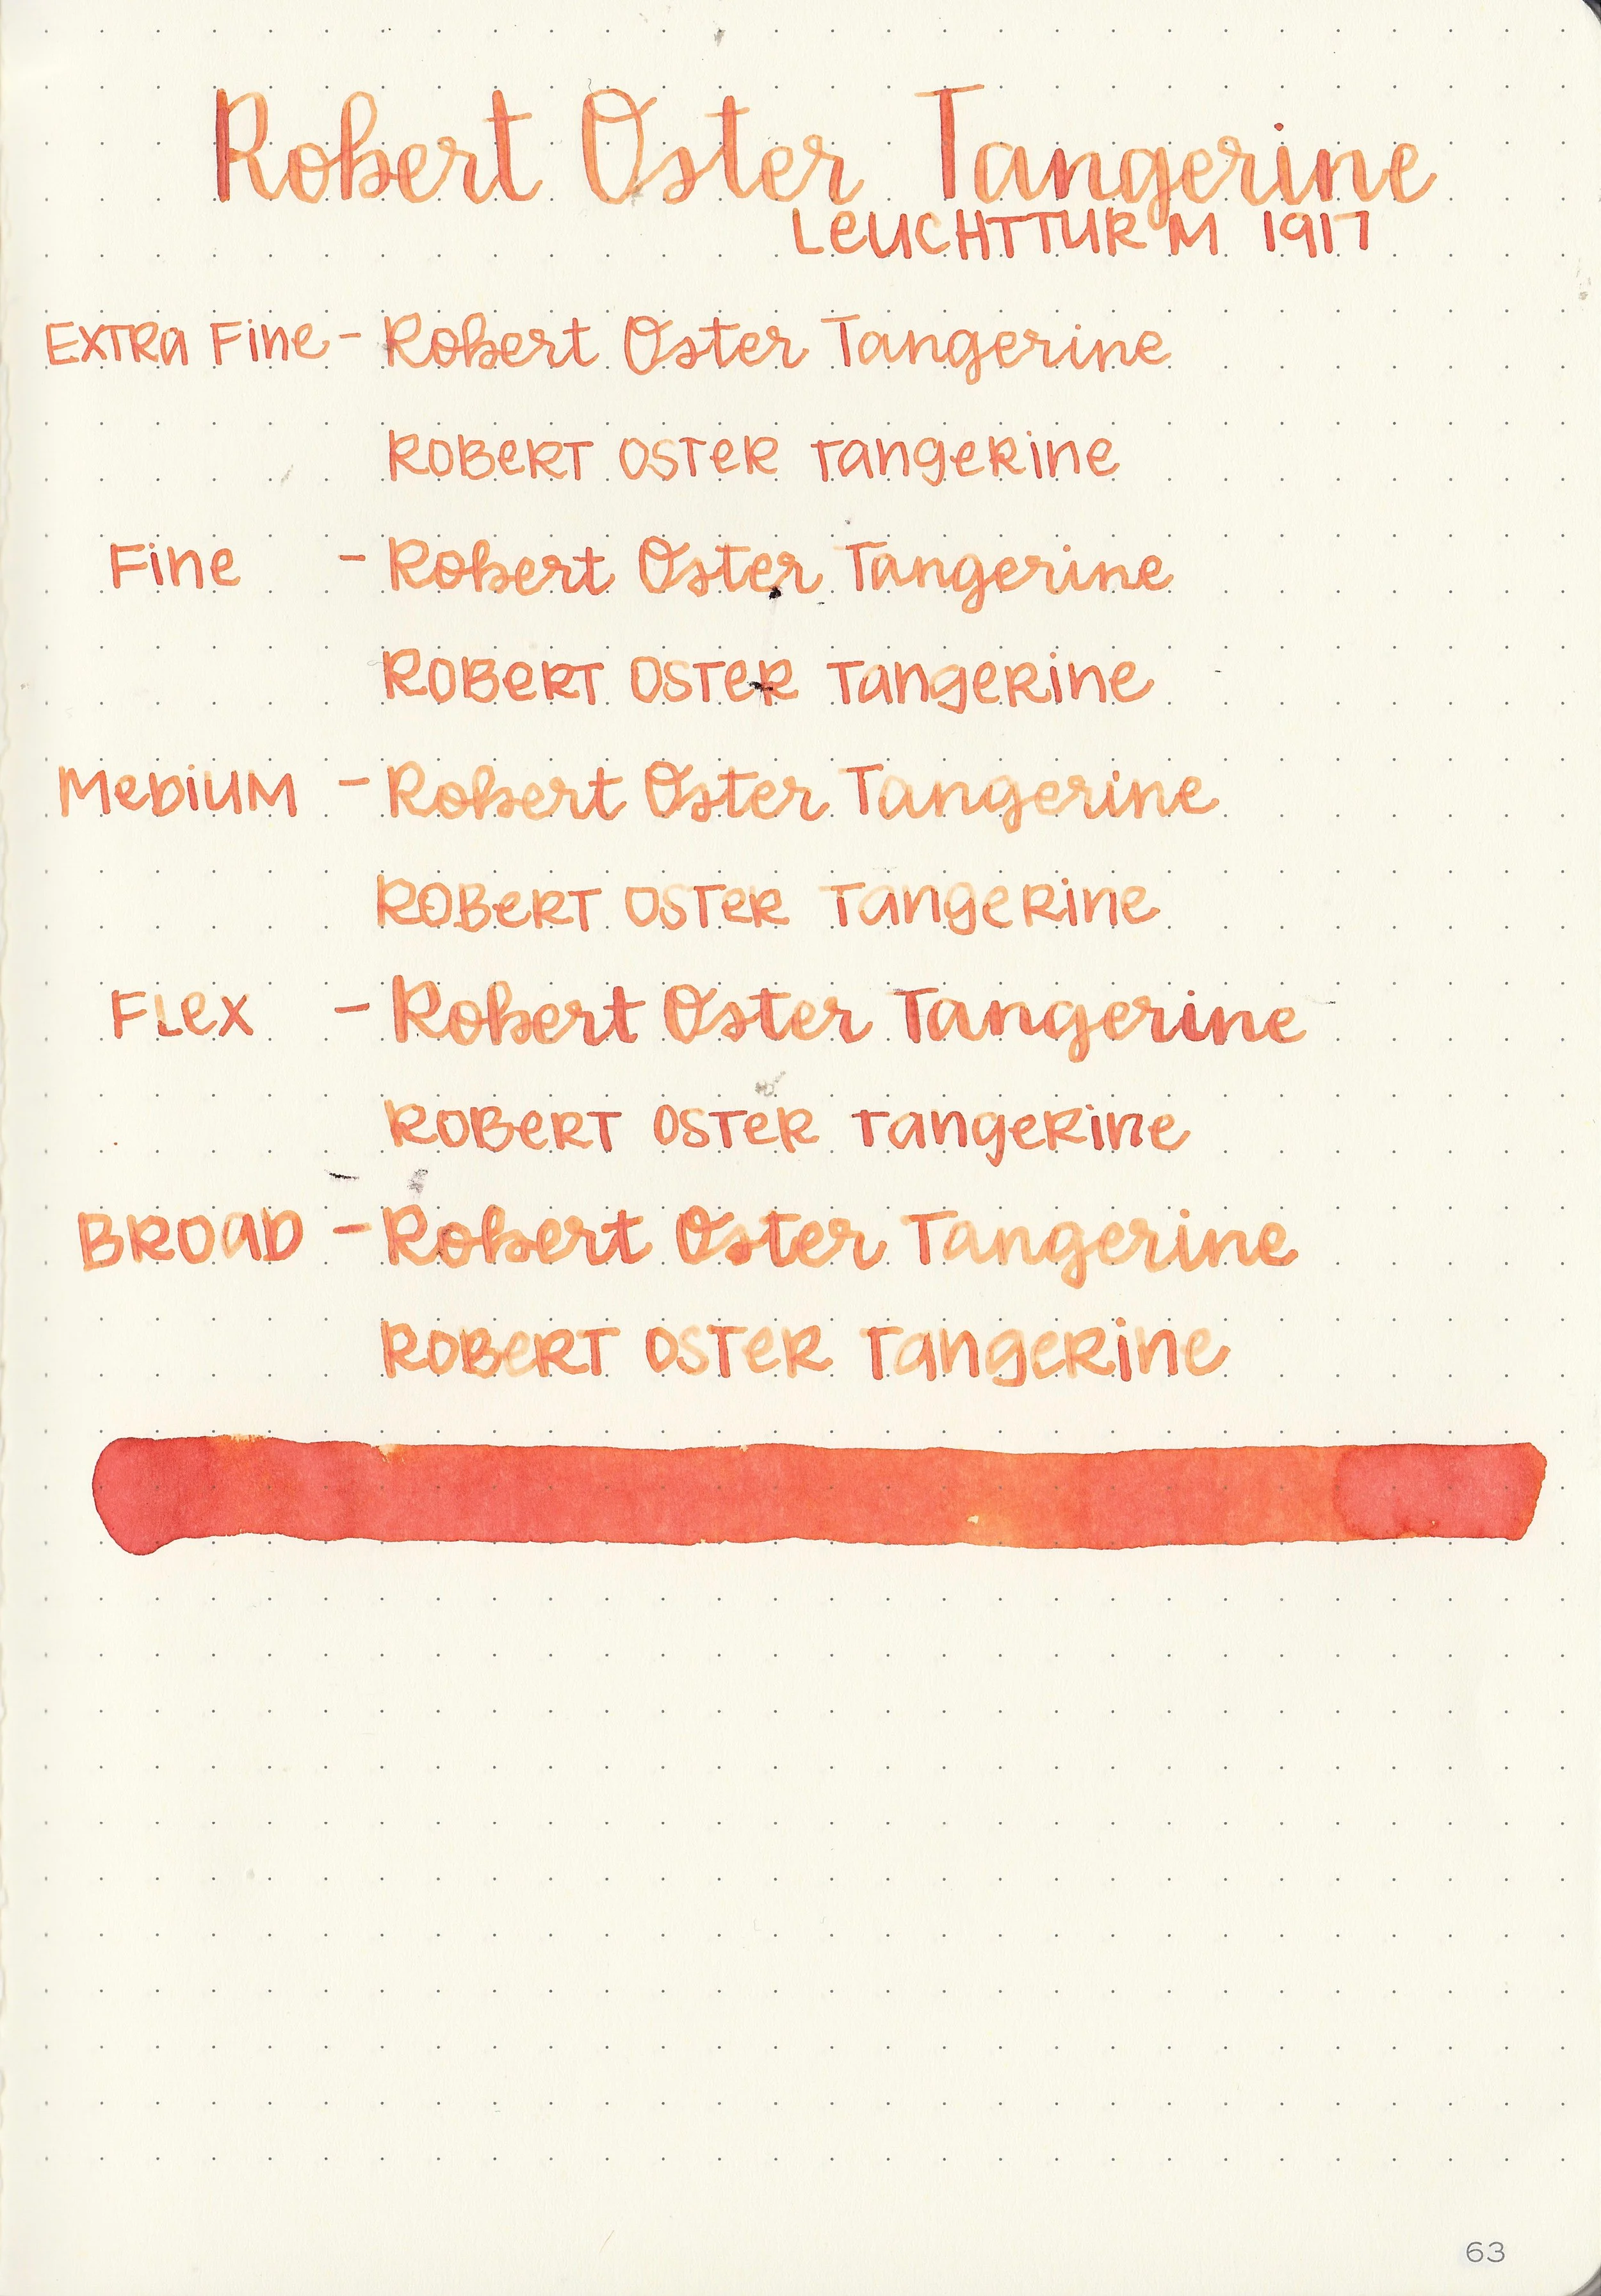 Robert Oster Tangerine
LEUCHTTURM 1917
EXTRA FiNe - Robert Oster Tangerine
ROBERT OSTER Tangerine
FiNe - Robert Oster Tangerine
ROBERT OSTER Tangerine
MEDIUM - Robert Oster Tangerine
ROBERT OSTER Tangerine
FLEX - Robert Oster Tangerine
ROBERT OSTER Tangerine
BROAD - Robert Oster Tangerine
ROBERT OSTER Tangerine
63